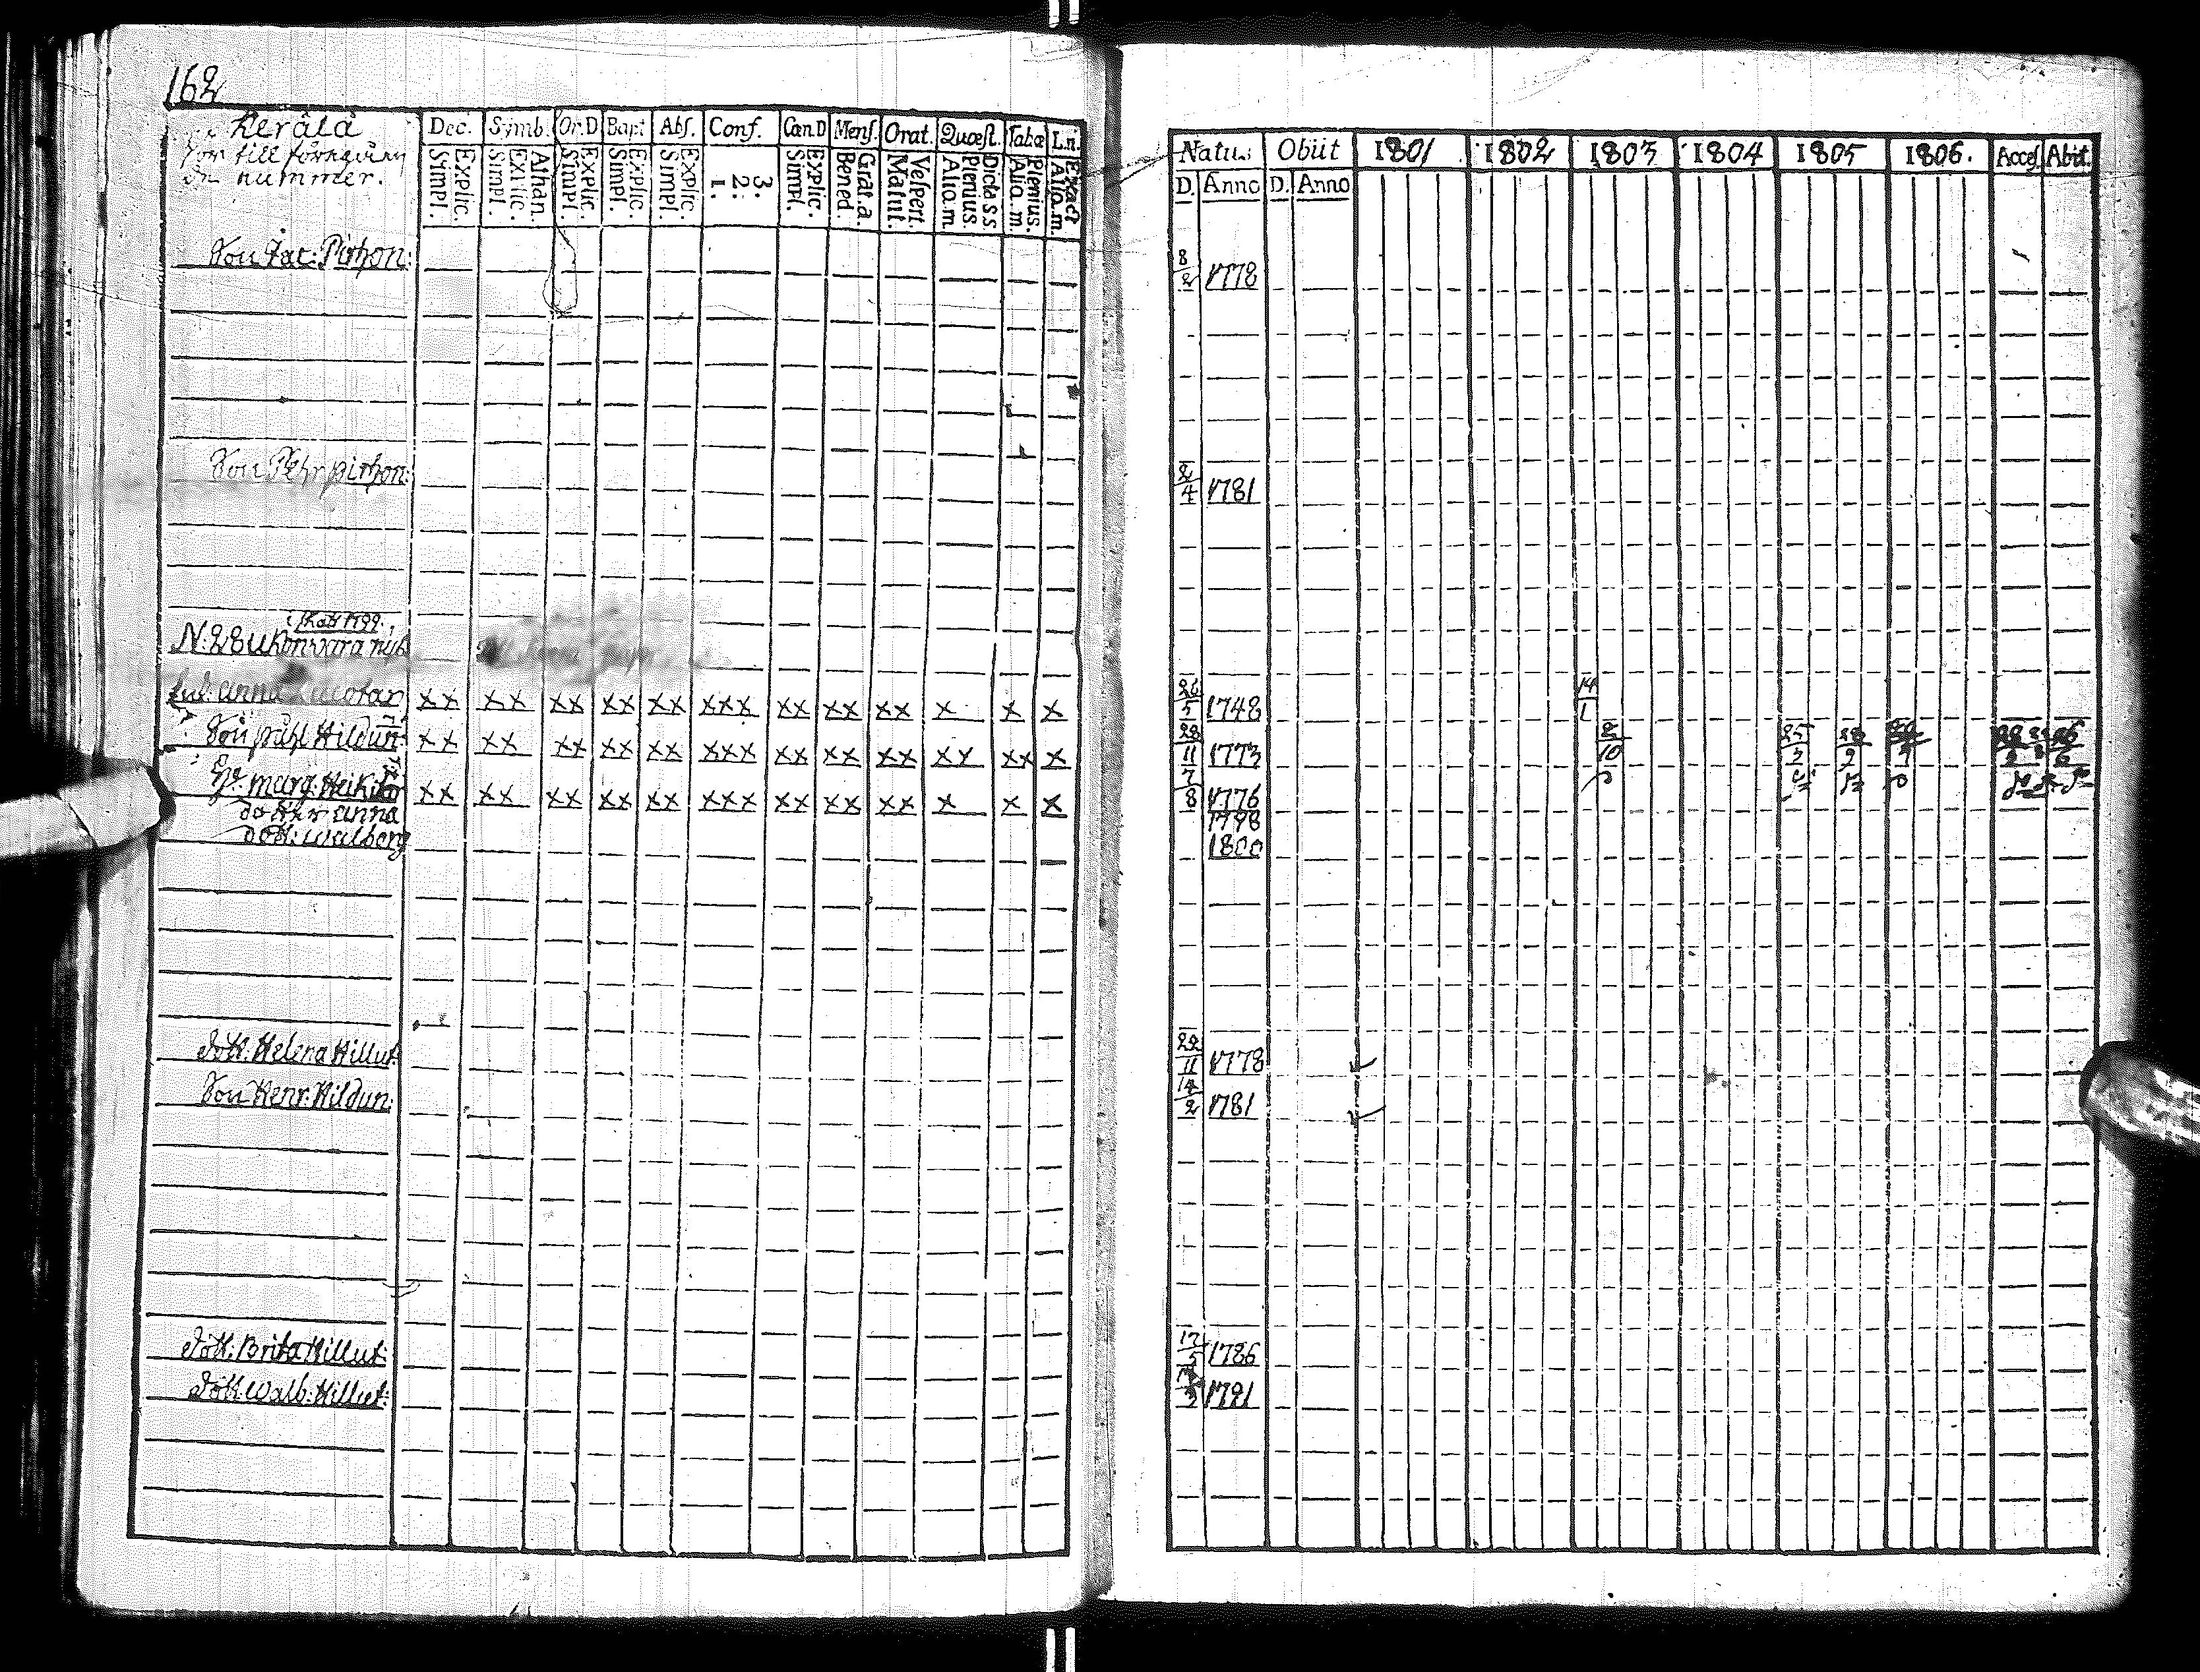 162
Kerälä
hör till föregåen
de nummer.
Dec. Symb. Or.D Bapt Abs. Conf. Can D Mens. Orat. Quæst. Tabæ L.n.
Explic. Simpl. Athan. Explic. Simpl. Explic. Simpl. Explic. Simpl. Explic. Simpl. 3. 2. 1. Explic. Simpl. Grat.a. Bened. Vespert. Matut. Dicta SS Plenius. Aliq.m. Plenius. Aliq.m. Exact Aliq.m.
Natus Obiit 1801 1802 1803 1804 1805 1806. Acces. Abit.
D. Anno D. Anno
Son Jac: Pirhon: 8/2 1778
Son Pehr pirhon: 2/4 1781
1799.
N. 28 Ukonvara
Anna xx xx xx xx xx xxx xx xx xx x x x 26/5 1748 14/1
Son påhl Hildun: xx xx xx xx xx xxx xx xx xx xx xx x 28/11 1773 2/10
Marg: xx xx xx xx xx xxx xx xx xx x x x 7/8 1776
dotter Anna 1798
dott: Walborg 1800
dott: Helena Hillut: 22/11 1778
Son Henr: Hildun: 14/2 1781
dott: Brita Hillut: 17/5 1786
dott: Walb: Hillut: 1791